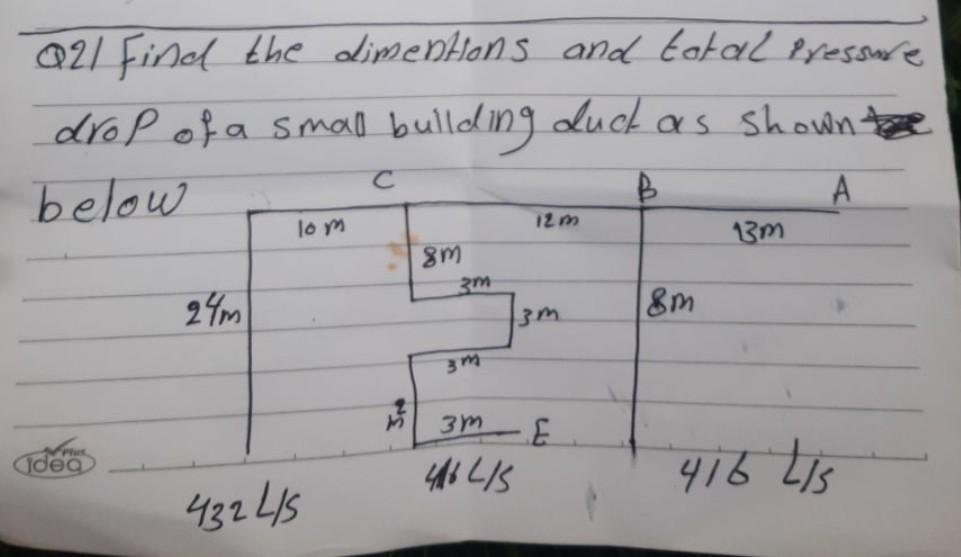 Q2/ Find the dimentions and total Pressure
drop of a small building duct as shown
below
C B A
10 m 12m 13m
8m
3m
24m 3m 8m
3m
2m
3m E
Plus
idea
432 L/S 416 L/S 416 L/S